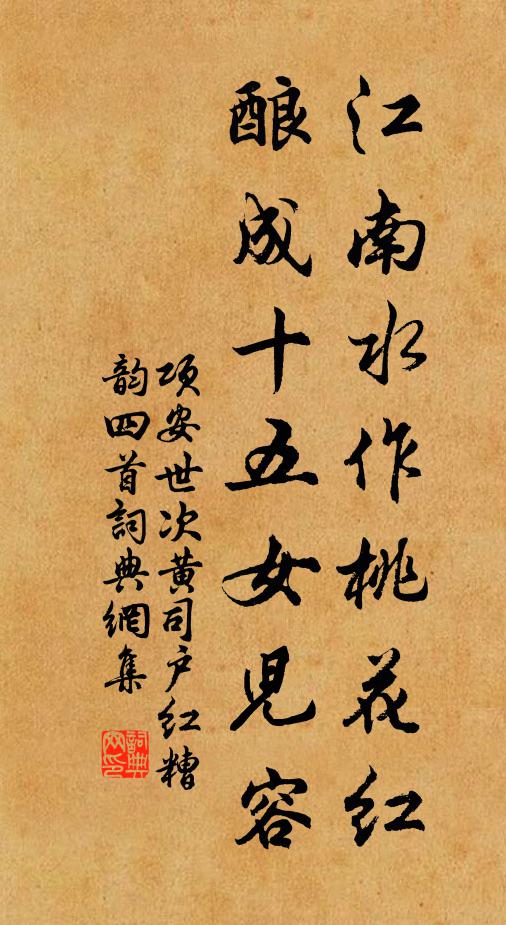 江南水作桃花红
酿成十五女兒容
项安世次黄司户红糟
韵四首詞典網集
詞典網印